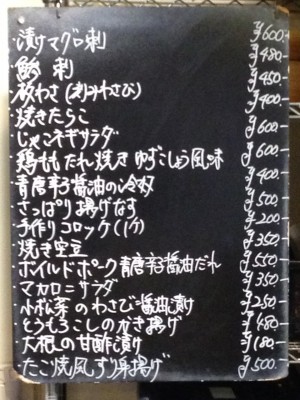 ・漬けマグロ刺 ¥600-
・鯵刺 ¥480-
・板わさ(刻みわさび) ¥450-
・焼きたらこ ¥400-
・じゃこネギサラダ ¥600-
・鶏ももたれ焼き ゆずこしょう風味 ¥600-
・青唐辛子醤油の冷奴 ¥400-
・さっぱり揚げなす ¥500-
・手作りコロッケ(1ケ) ¥200-
・焼き空豆 ¥350-
・ボイルドポーク青唐辛子醤油だれ ¥550-
・マカロニサラダ ¥350-
・小松菜のわさび醤油漬け ¥250-
・とうもろこしのかき揚げ ¥480-
・大根の甘酢漬け ¥180-
・たこ焼風すり身揚げ ¥500-